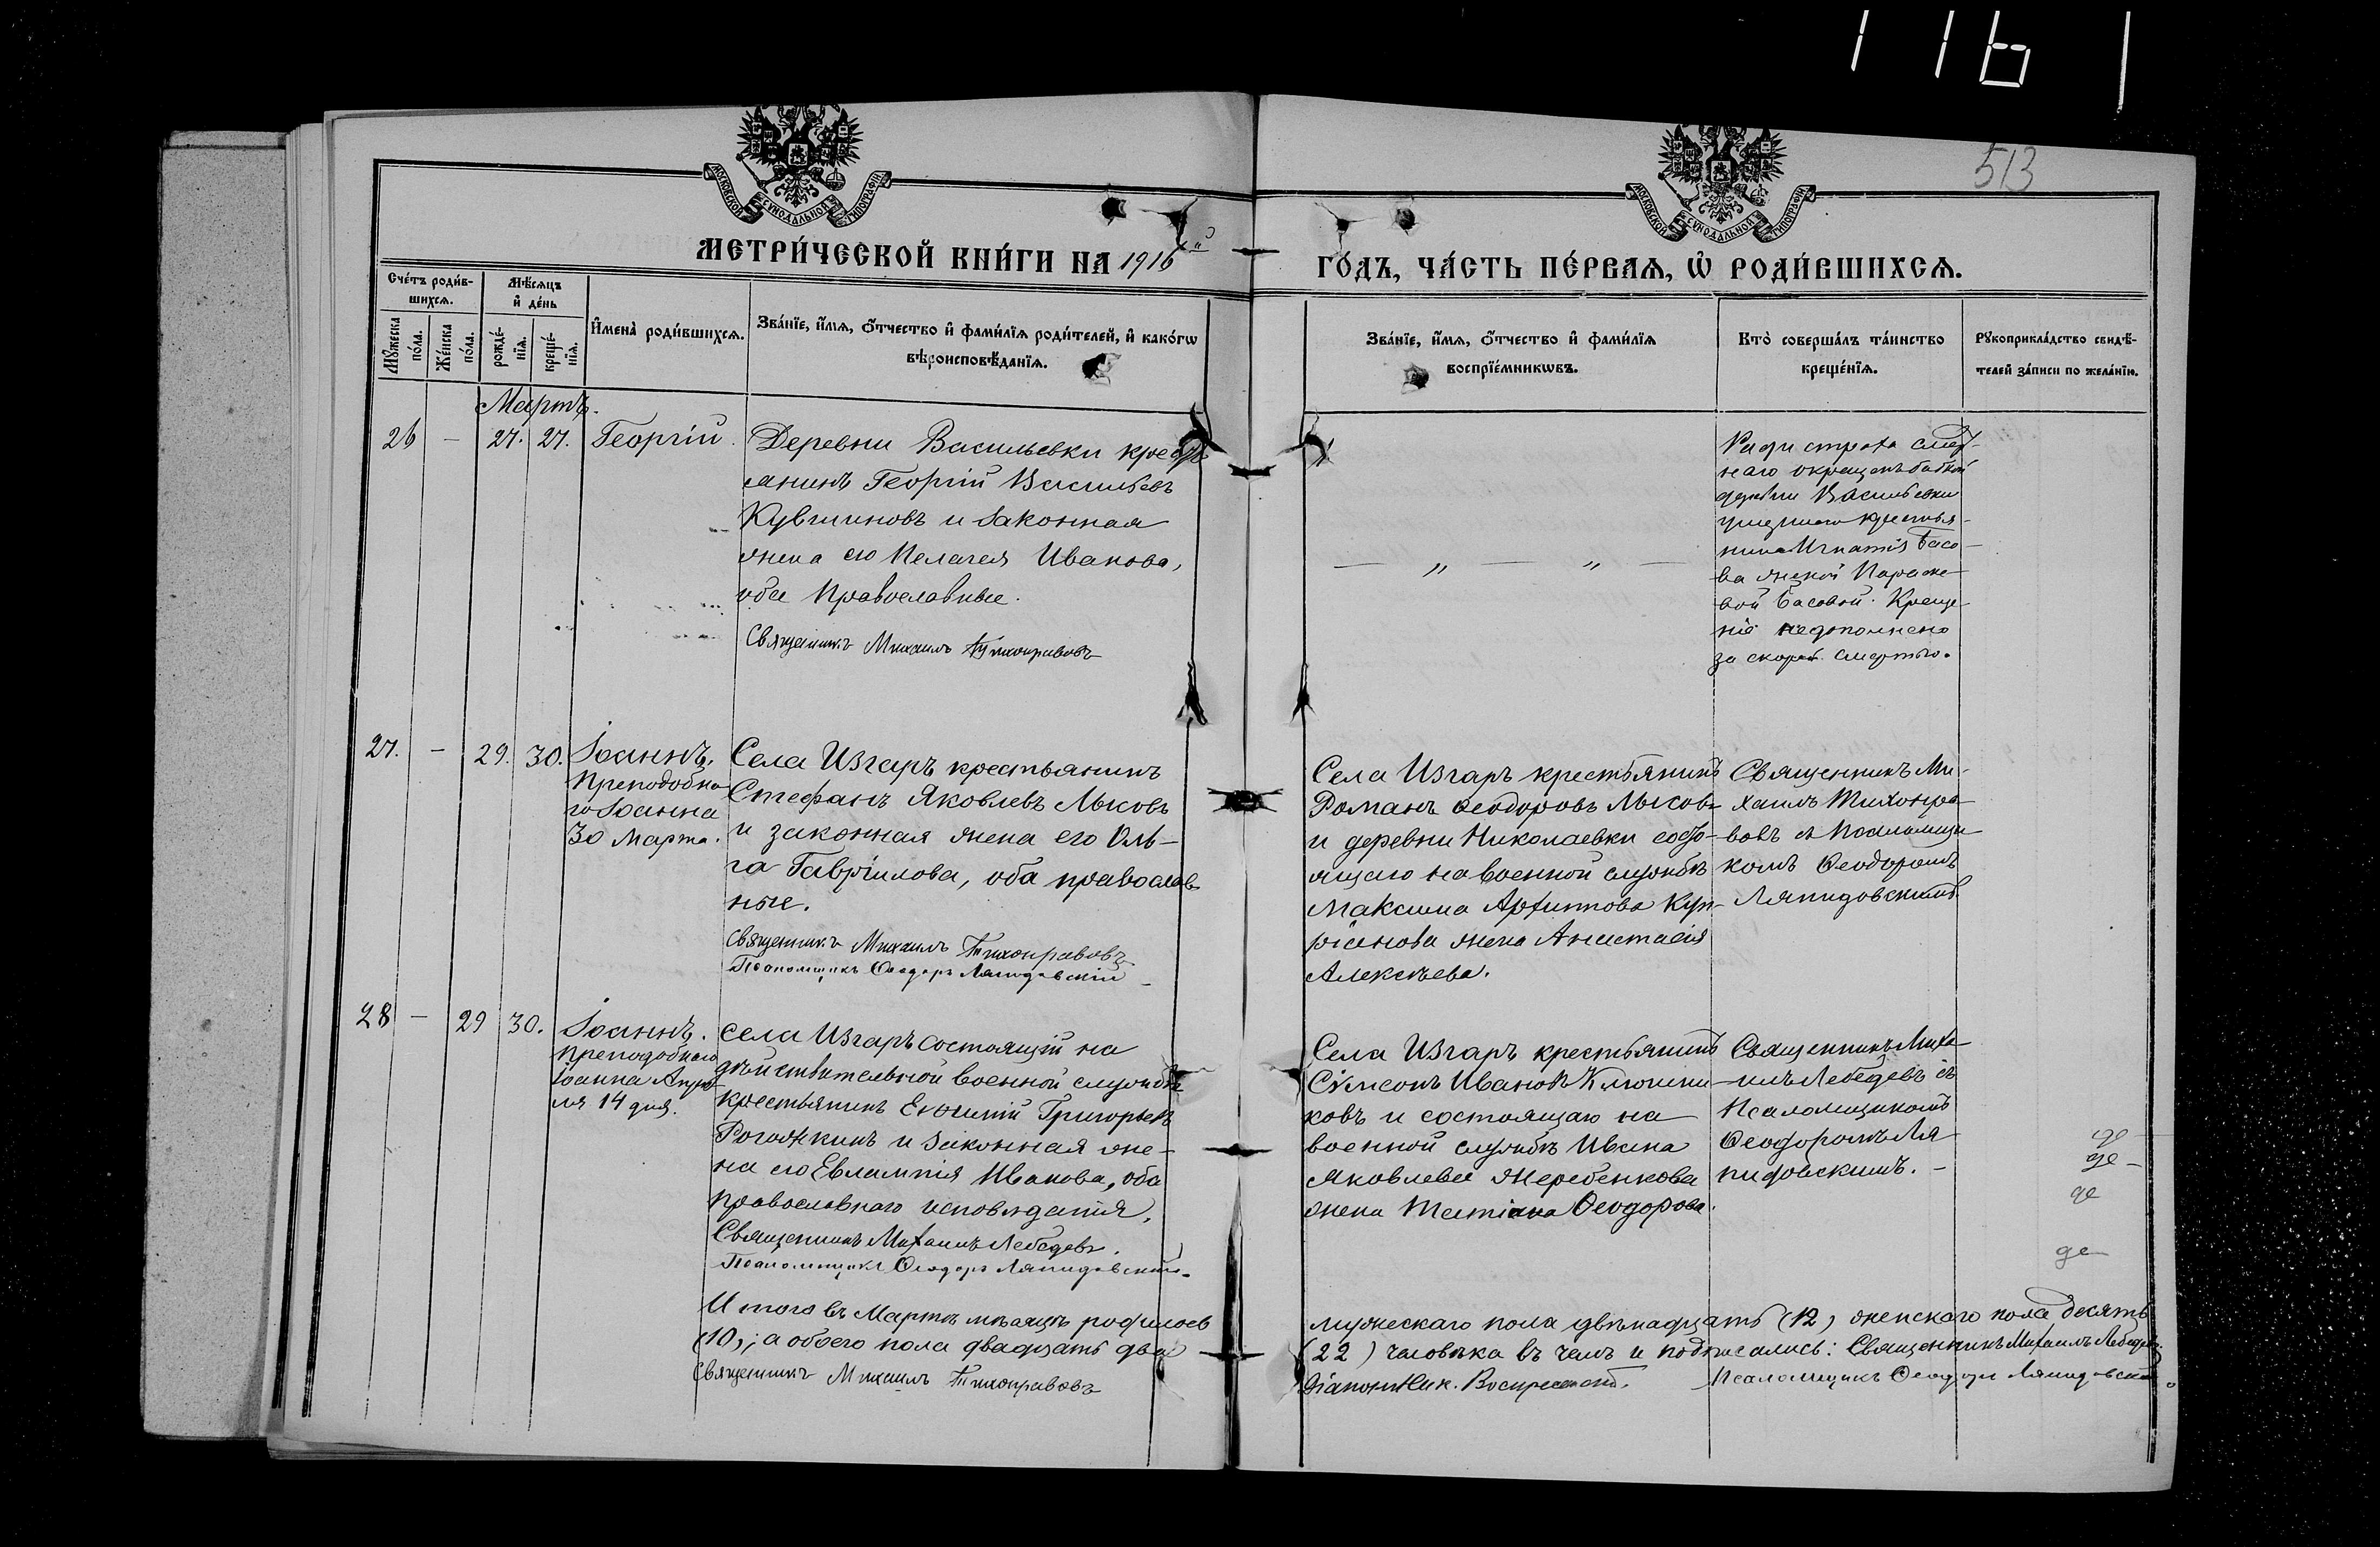 116 1
513
МОСКОВСКОЙ СѴНОДАЛЬНОЙ ТИПОГРАФІИ
МОСКОВСКОЙ СѴНОДАЛЬНОЙ ТИПОГРАФІИ
МЕТРИ́ЧЕСКОЙ КНИ́ГИ НА 1916й
ГО́ДЪ, ЧА́СТЬ ПЕ́РВАЯ, Ѡ РОДИ́ВШИХСЯ.
Сче́тъ роди́в-
шихся.
Мѣ́сяцъ
и де́нь
Мꙋ́жеска
по́ла.
Же́нска
по́ла.
рожде́-
нїя.
креще́-
нїя.
Имена̀ роди́вшихся.
Зва́нїе, и́мя, о́тчество и фами́лїя роди́телей, и како́гѡ
вѣроисповѣ́данїя.
Зва́нїе, и́мя, о́тчество и фами́лїя
воспрїе́мникѡвъ.
Кто̀ соверша́лъ та́инство
креще́нїя.
Рꙋкоприкла́дство свидѣ́-
телей за́писи по жела́нїю.
Мартъ.
26 — 27. 27. Георгій.
Деревни Васильевки кресть
янинъ Георгій Васильевъ
Кувшиновъ и законная
жена его Пелагея Иванова,
оба Православные.
Священникъ Михаилъ Тихонравовъ
— „ — „ —
Ради страха смерт-
наго окрещенъ бабкой
деревни Васильевки
крестья-
нина Игнатія Басо-
ва женой Параске-
вой Басовой. Креще-
ніе недополнено
за скорой смертью.
27. — 29. 30. Іоаннъ.
Преподобна
го Іоанна
30 Марта.
Села Изгаръ крестьянинъ
Стефанъ Яковлевъ Лысовъ
и законная жена его Оль-
га Гавріилова, оба православ-
ные.
Священникъ Михаилъ Тихонравовъ
Псаломщикъ Ѳеодоръ Ляпидовскій
Села Изгаръ крестьянинъ
Романъ Ѳеодоровъ Лысовъ
и деревни Николаевки состо-
ящаго на военной службѣ
Максима Архипова Куп-
ріанова жена Анастасія
Алексѣева.
Священникъ Ми-
хаилъ Тихонра-
вовъ съ Псаломщи
комъ Ѳеодоромъ
Ляпидовскимъ.
28 — 29 30. Іоаннъ.
Преподобнаго
Іоанна Апрѣ-
ля 14 дня.
Села Изгаръ состоящій на
дѣйствительной военной службѣ
крестьянинъ Евѳимій Григорьевъ
Рогожкинъ и законная же-
на его Евлампія Иванова, оба
православнаго исповѣданія.
Священникъ Михаилъ Лебедевъ.
Псаломщикъ Ѳеодоръ Ляпидовскій.
Села Изгаръ крестьянинъ
Сѵмеонъ Ивановъ Ключни-
ковъ и состоящаго на
военной службѣ Ивана
Яковлева Жеребенкова
жена Татіана Ѳеодорова.
Священникъ Миха-
илъ Лебедевъ съ
Псаломщикомъ
Ѳеодоромъ Ля-
пидовскимъ. —
Итого въ Мартѣ мѣсяцѣ родилось
(10), а обоего пола двадцать два
Священникъ Михаилъ Тихонравовъ
мужескаго пола двѣнадцать (12) женскаго пола десять
(22) человѣка въ чемъ и подписались: Священникъ Михаилъ Лебедевъ.
Діаконъ Ник. Воскресенскій.
Псаломщикъ Ѳеодоръ Ляпидовскій.